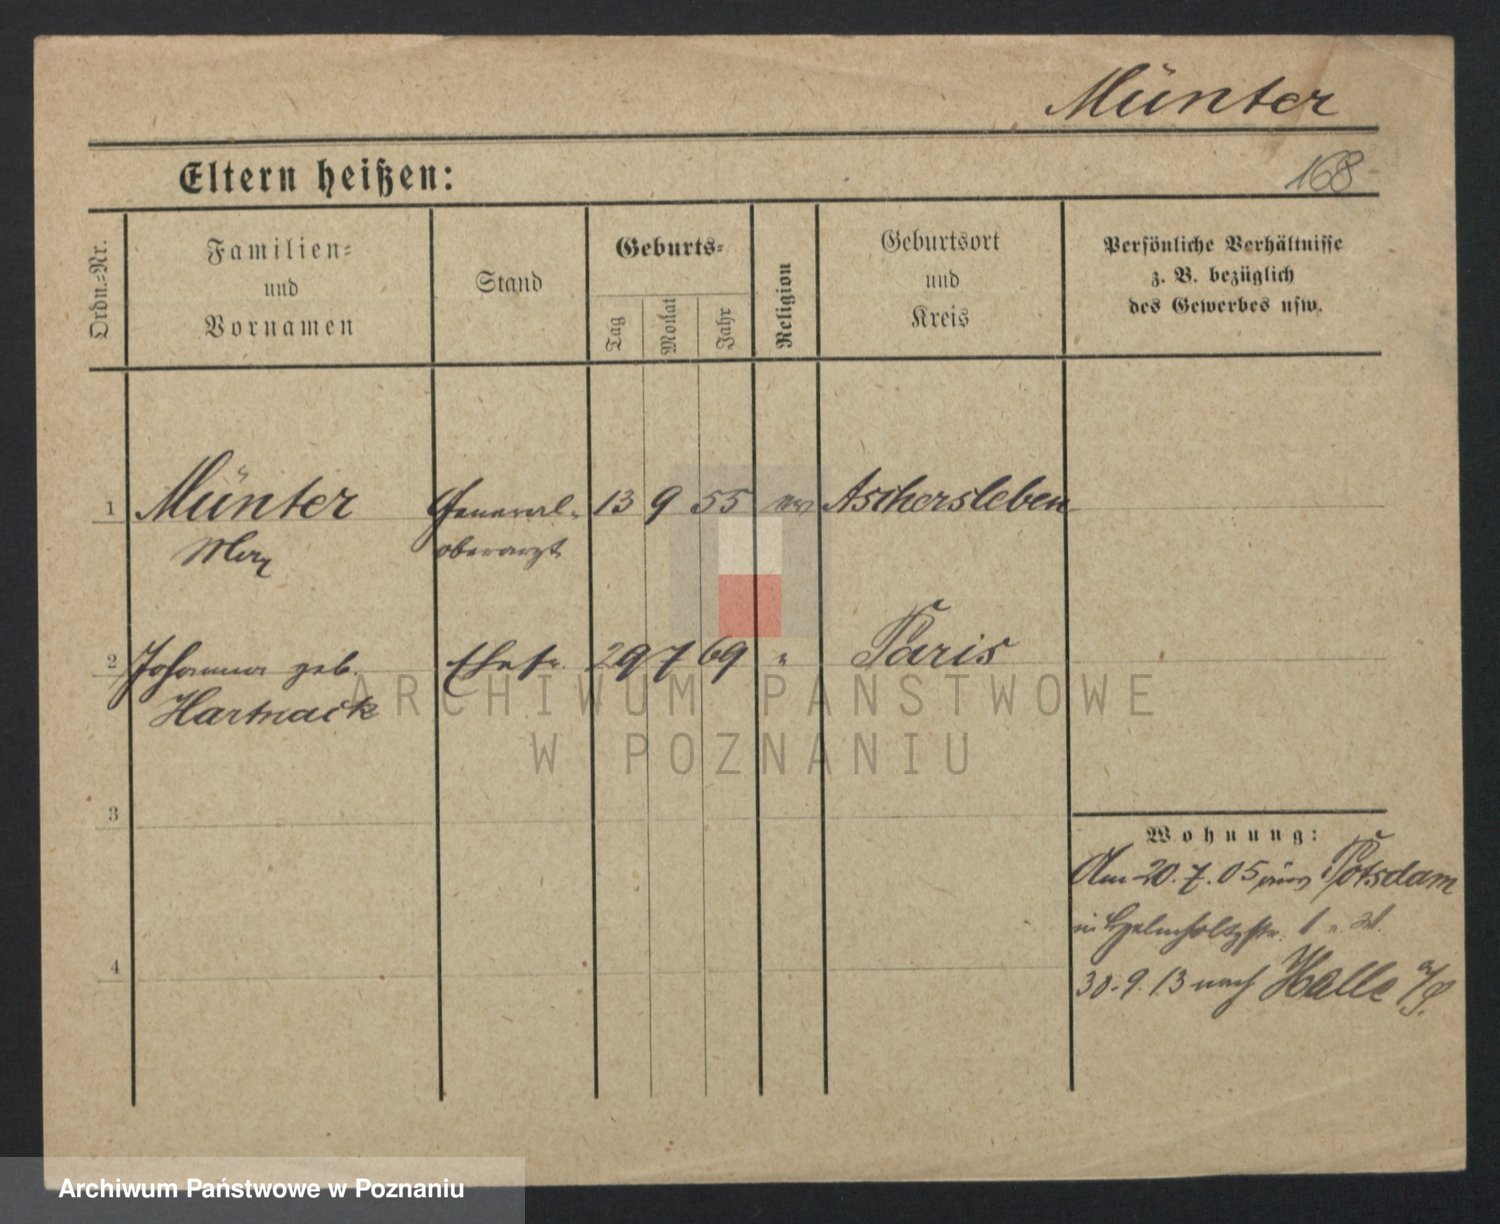 Münter
Eltern heißen:
168
Ordn.-Nr.
Familien-
und
Vornamen
Stand
Geburts-
Tag
Monat
Jahr
Religion
Geburtsort
und
Kreis
Persönliche Verhältnisse
z. B. bezüglich
des Gewerbes usw.
1 Münter General- 13 9 55 Aschersleben
Max oberarzt
2 Johanna geb. Ehefr. 29 7 69 " Paris
Hartnack
3
4
Wohnung:
Am 20.7.05 aus Potsdam
in Helmholtzstr. 1
30.9.13 nach Halle a/S.
ARCHIWUM PAŃSTWOWE
W POZNANIU
Archiwum Państwowe w Poznaniu